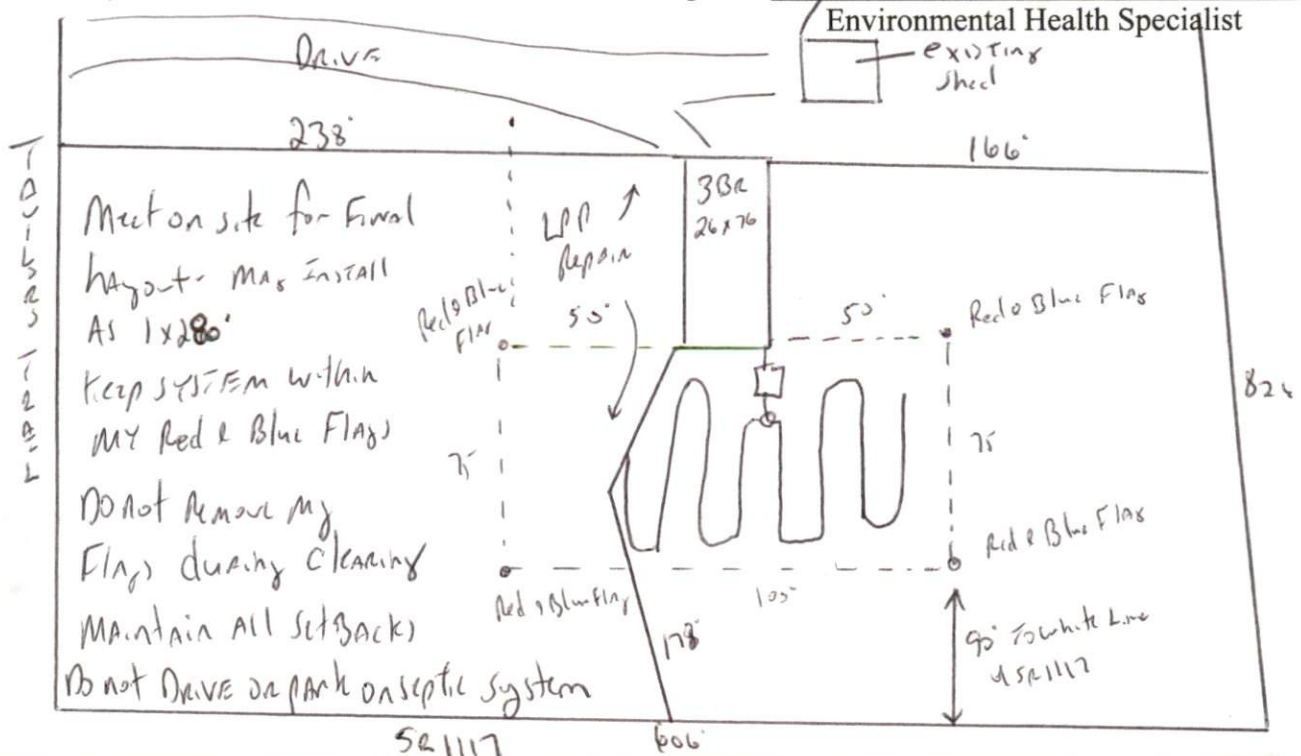 Environmental Health Specialist
existing
shed
DRIVE
238'
166'
Meet on site for Final
Layout - May Install
As 1x280'
Keep SYSTEM within
MY Red & Blue Flags
DO not Remove My
Flags during Clearing
MAintain All SetBacks
Do not Drive or park on septic system
LPP
Repair
3BR
26x76
Red & Blue
Flag
50'
50'
Red & Blue Flag
75
75
Red & Blue Flag
Red & Blue Flag
105'
178'
To white Line
SR1117
SR 1117
606'